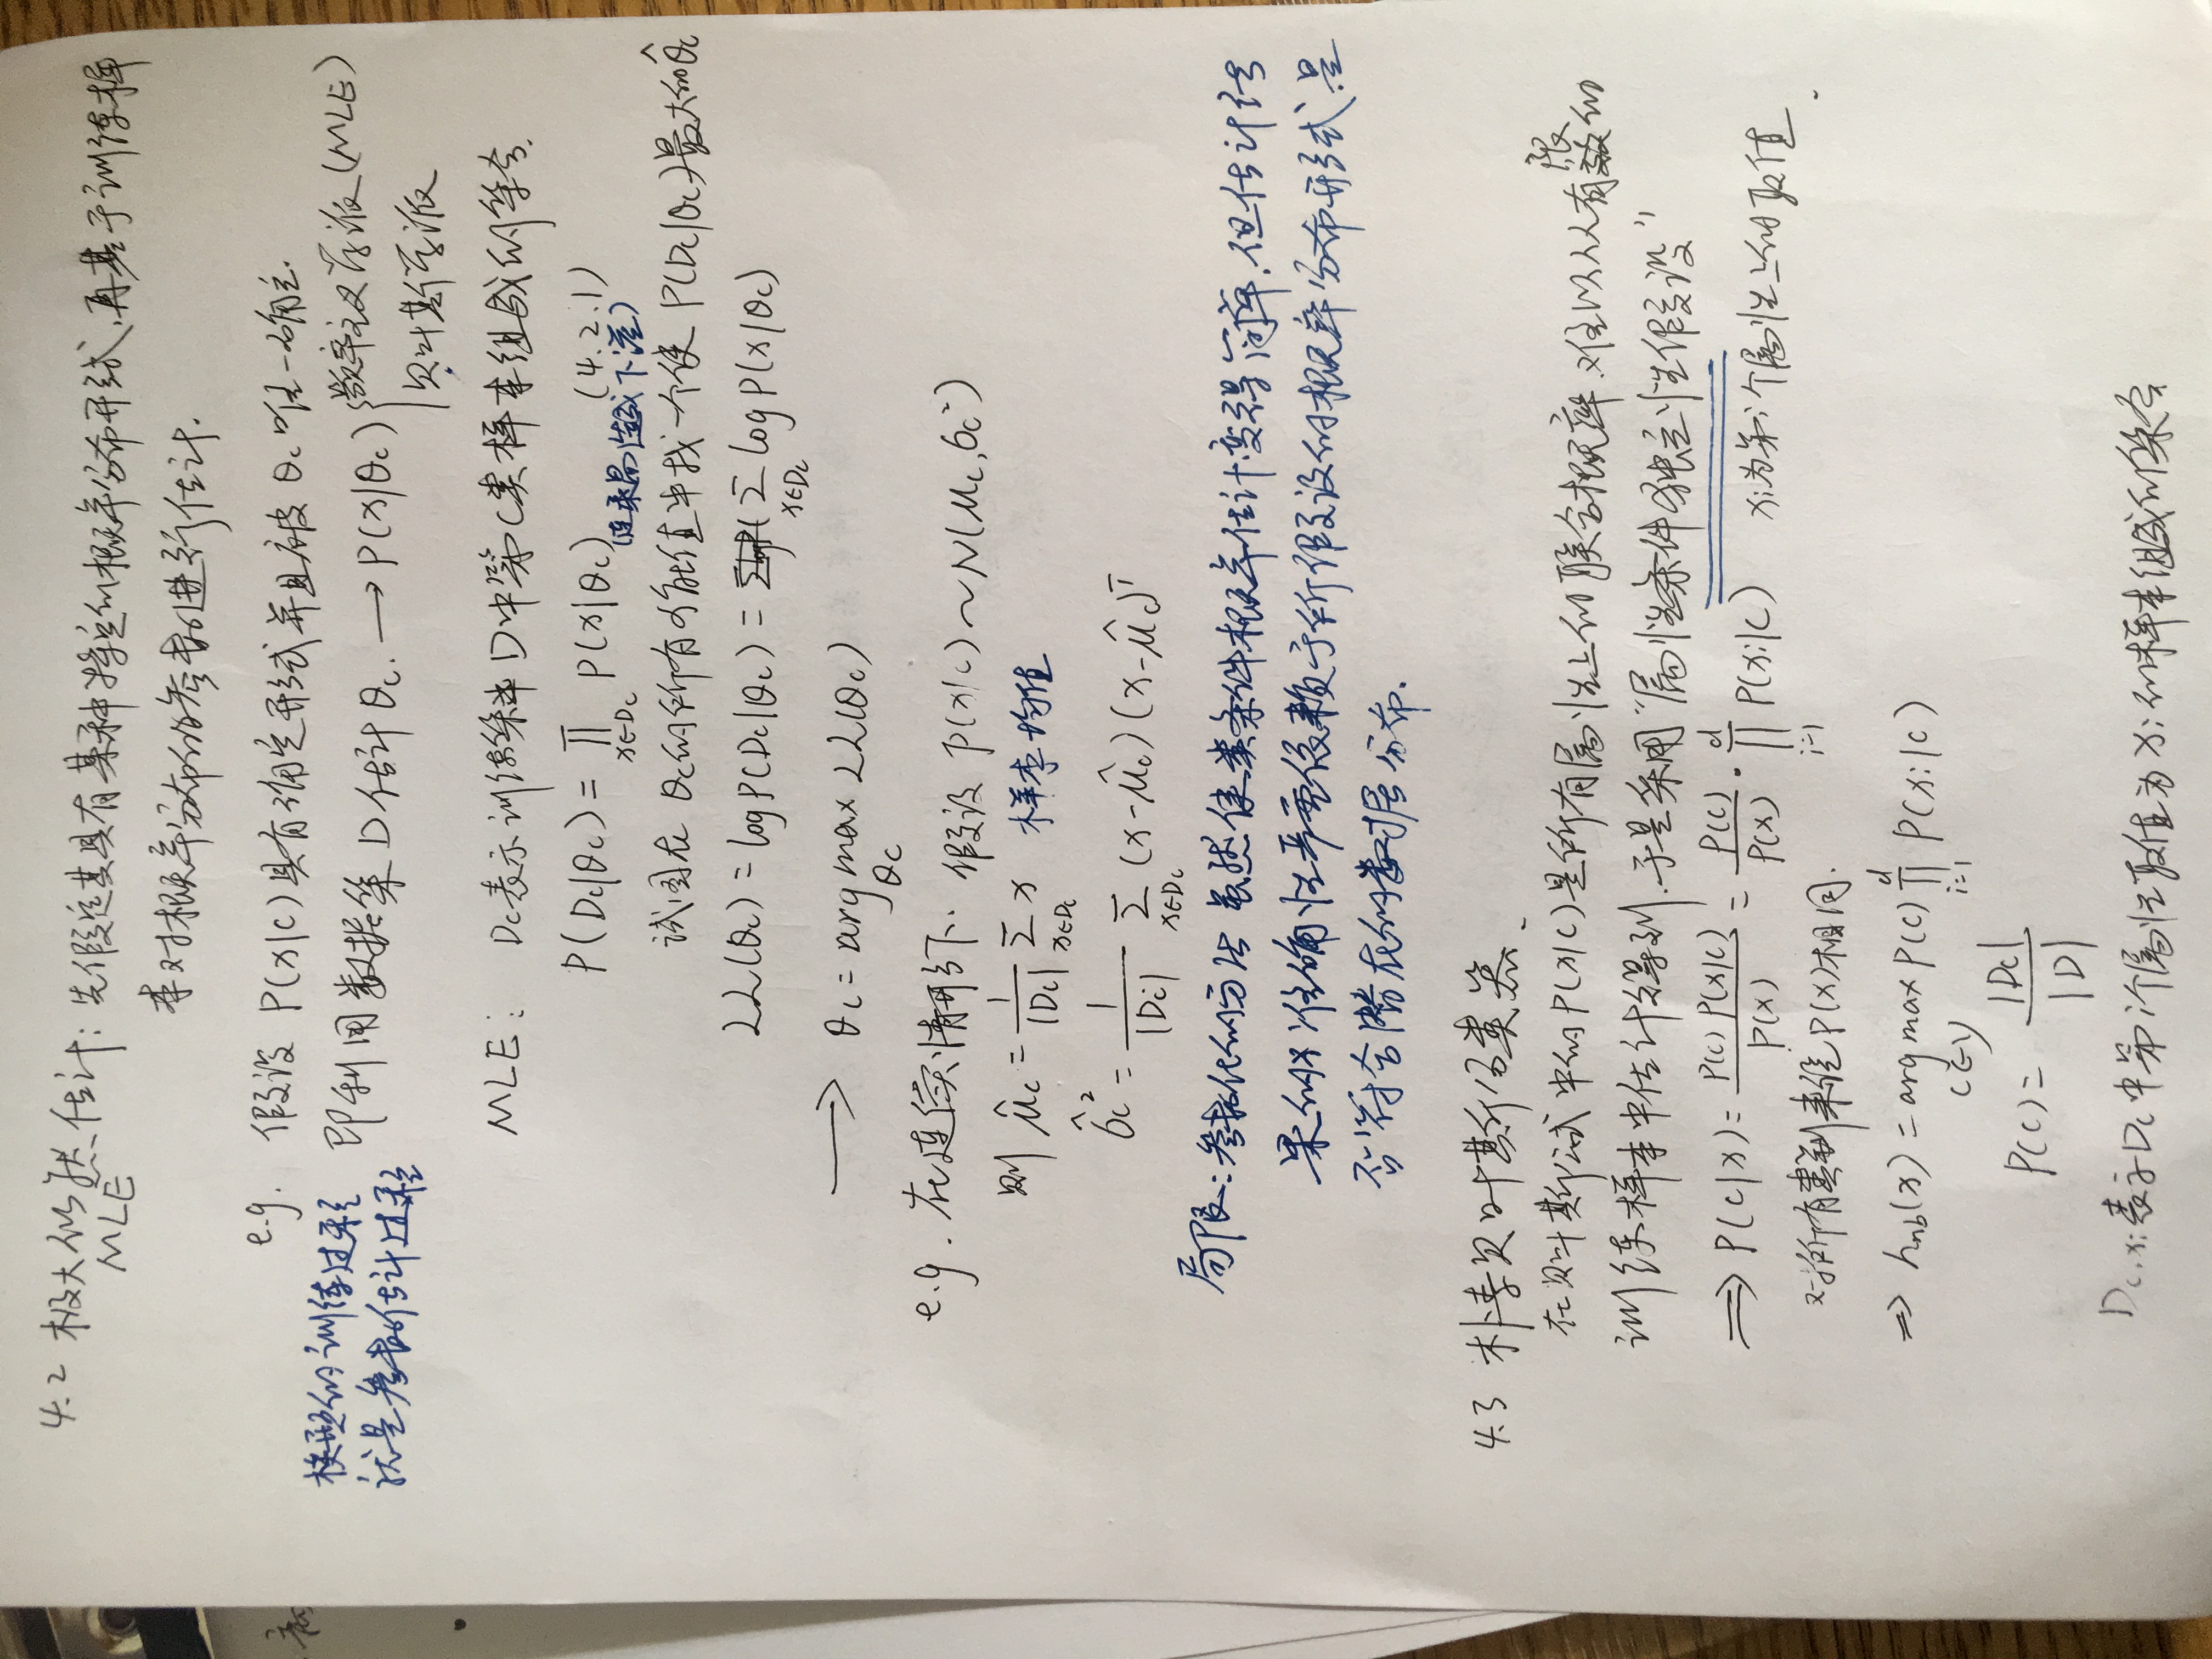 4.2 极大似然估计: 先假定其具有某种特定的概率分布形式,再基于训练样
MLE
本对概率分布的参数进行估计.
e.g. 假设 P(x|c)具有确定形式并且被 θc 唯一确定.
模型的训练过程
就是参数估计过程
即利用数据集 D 估计 θc. → P(x|θc) { 频率主义学派(MLE)
贝叶斯学派
MLE: Dc表示训练集 D中第c类样本组成的集合.
P(Dc|θc) = ∏_{x∈Dc} P(x|θc) (4.2.1)
(连乘易造成下溢)
试图在 θc的所有可能值中找一个使 P(Dc|θc)最大的θ̂c
LL(θc) = log P(Dc|θc) = Σ_{x∈Dc} log P(x|θc)
→ θc = arg max_{θc} LL(θc)
e.g. 在连续情形下. 假设 p(x|c) ~ N(μc, σc²)
则 μ̂c = 1/|Dc| Σ_{x∈Dc} x 样本均值
σ̂c² = 1/|Dc| Σ_{x∈Dc} (x-μ̂c)(x-μ̂c)ᵀ
局限: 参数化的方法虽然使类条件概率估计变得简单,但估计结
果的准确性严重依赖于所假设的概率分布形式是
否符合潜在的数据分布.
4.3 朴素贝叶斯分类器.
在贝叶斯公式中的P(x|c)是所有属性上的联合概率,难以从有限的
训练样本中估计得到.于是采用"属性条件独立性假设"
⇒ P(c|x) = P(c)P(x|c)/P(x) = P(c)/P(x) · ∏_{i=1}^{d} P(xi|c) xi为第i个属性上的取值.
对所有类别来说P(x)相同.
⇒ hnb(x) = arg max_{c∈y} P(c) ∏_{i=1}^{d} P(xi|c)
P(c) = |Dc|/|D|
Dc,xi表示Dc中第i个属性取值为xi的样本组成的集合